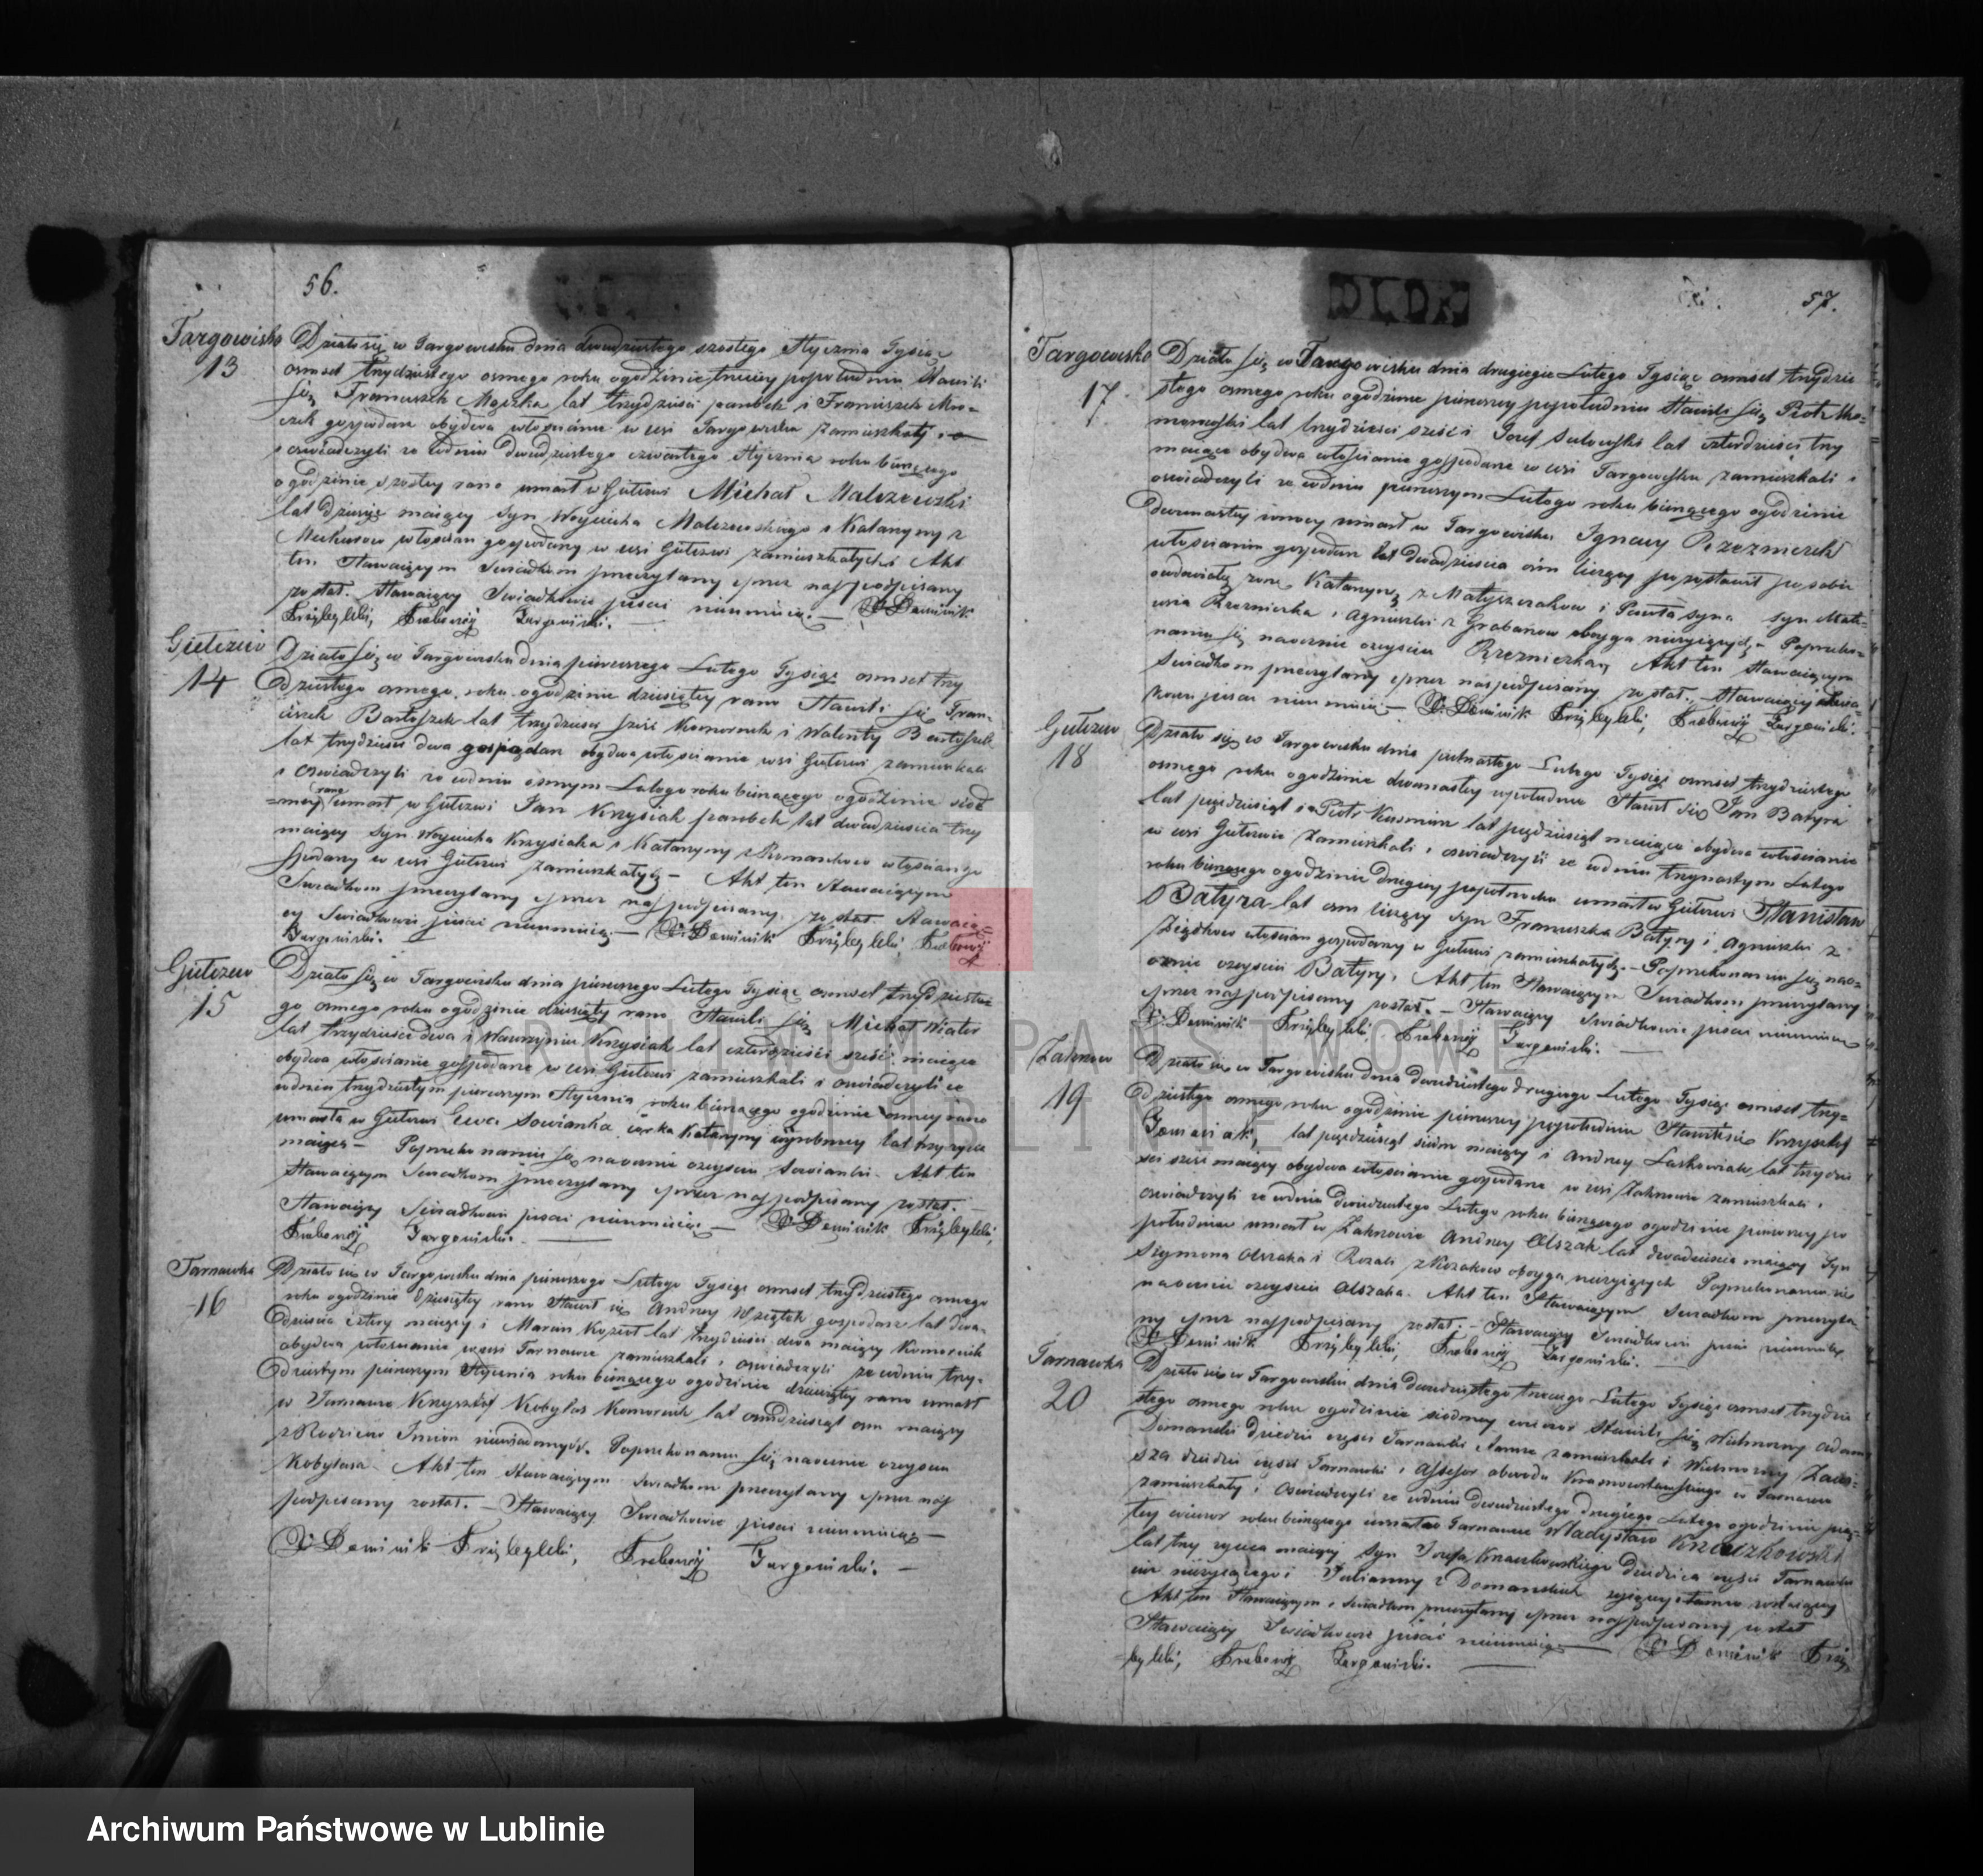 56.
Targowisko
13
Działo się w Targowisku dnia dwudziestego szostego Stycznia Tysiąc
osmset trzydziestego osmego roku ogodzinie trzeciey popołudniu Stawili
się Franciszek lat trzydzieści parobek i Franciszek
gospodarz obydwa włoscianie w wsi Targowisku zamieszkały
i oswiadczyli ze wdniu dwudziestego czwartego Stycznia roku bieżącego
ogodzinie szostey rano umarł w Giełczwi Michał Malczewski
lat dziesięć maiący syn Woyciecha Malczewskiego i Katarzyny z
włoscian gospodarzy w wsi Giełczwi zamieszkałych Akt
ten Stawaiącym Swiadkom przeczytany i przez nas podpisany
został. Stawaiący Swiadkowie pisać nieumieią. — X. Dominik
Targowiski.
Giełczew
14
Działo się w Targowisku dnia pierwszego Lutego Tysiąc osmset trzy
dziestego osmego roku ogodzinie dziesiątey rano Stawili się Fran-
ciszek Bartoszek lat trzydzieści sześć Komornik i Walenty Bartoszek
lat trzydzieści dwa gospodarz obydwa włoscianie wsi Giełczwi zamieszkali
i oswiadczyli ze wdniu osmym Lutego roku bieżącego ogodzinie siod
mey rano umarł w Giełczwi Jan Krzysiak parobek lat dwadziescia trzy
maiący syn Woyciecha Krzysiaka i Katarzyny z włoscian go
spodarzy w wsi Giełczwi zamieszkałych — Akt ten Stawaiącym
Swiadkom przeczytany i przez nas podpisany został Stawaią-
cy Swiadkowie pisać nieumieią — X. Dominik
Targowiski.
Giełczew
15
Działo się w Targowisku dnia pierwszego Lutego Tysiąc osmset trzydzieste
go osmego roku ogodzinie dziesiąty rano Stawili się Michał Wiater
lat trzydzieści dwa i Wawrzyniec Krzysiak lat czterdzieści sześć maiące
obydwa włoscianie gospodarze w wsi Giełczwi zamieszkali i oswiadczyli ze
wdniu trzydziestym pierwszym Stycznia roku bieżącego ogodzinie osmey rano
umarła w Giełczwi Ewa Sowianka córka Katarzyny wyrobnicy lat trzy życia
maiąca — Poprzekonaniu się naocznie ozeyściu Sowianki. Akt ten
Stawaiącym Swiadkom przeczytany i przez nas podpisany został. —
Stawaiący Swiadkowie pisać nieumieią — X. Dominik
Targowiski.
Tarnawka
16
Działo się w Targowisku dnia pierwszego Lutego Tysiąc osmset trzydziestego osmego
roku ogodzinie dziesiątey rano Stawił się Andrzey Wziątek gospodarz lat dwa-
dziescia cztery maiący i Marcin Kozieł lat trzydzieści dwa maiący Komornik
obydwa włoscianie wwsi Tarnawce zamieszkali i oswiadczyli ze wdniu trzy-
dziestym pierwszym Stycznia roku bieżącego ogodzinie dziesiątey rano umarł
w Tarnawce Krzysztof Kobylas Komornik lat osmdziesiąt osm maiący
z Rodziców Imion niewiadomych. Poprzekonaniu się naocznie ozeysciu
Kobylasa Akt ten Stawaiącym swiadkom przeczytany i przez nas
podpisany został. — Stawaiący Swiadkowie pisać nieumieią —
X. Dominik Targowiski. —
DLDK
57.
Targowisko
17.
Działo się w Targowisku dnia drugiego Lutego Tysiąc osmset trzydzie
stego osmego roku ogodzinie pierwszey popołudniu Stawili się Piotr Sko-
morowski lat trzydzieści sześć i Jozef Sutowski lat czterdzieści trzy
maiące obydwa włościanie gospodarze w wsi Targowisku zamieszkali i
oswiadczyli ze wdniu pierwszym Lutego roku bieżącego ogodzinie
dwunastey wnocy umarł w Targowisku Ignacy Rzezniczek
włoscianin gospodarz lat dwadziescia osm liczący pozostawił posobie
owdowiałą żonę Katarzynę z Matyszczaków i Pawła syna syn Mate-
usza Rzeznicka i Agnieszki z Grabanow oboyga nieżyiących — Poprzeko-
naniu się naocznie ozeysciu Rzezniczka, Akt ten Stawaiącym
Swiadkom przeczytany i przez nas podpisany został. — Stawaiący Swia-
kowie pisać nieumieią — X. Dominik Targowiski.
Giełczew
18
Działo się w Targowisku dnia pietnastego Lutego Tysiąc osmset trzydziestego
osmego roku ogodzinie dwunastey wpołudnie Stawił się Jan Batyra
lat pięćdziesiąt i Piotr Kusmierz lat pięćdziesiąt maiące obydwa włoscianie
w wsi Giełczwi zamieszkali i oswiadczyli ze wdniu trzynastym Lutego
roku bieżącego ogodzinie drugiey popołnocku umarł w Giełczwi Stanisław
Batyra lat osm liczący syn Franciszka Batyry i Agnieszki z
włoscian gospodarzy w Giełczwi zamieszkałych. — Poprzekonaniu się nao-
cznie ozeysciu Batyry, Akt ten Stawaiącym Swiadkom przeczytany
i przez nas podpisany został. — Stawaiący Swiadkowie pisać nieumieią
X. Dominik Targowiski. —
Zakrzew
19
Działo się w Targowisku dnia dwudziestego drugiego Lutego Tysiąc osmset trzy-
dziestego osmego roku ogodzinie pierwszey popołudniu Stawił się Krzysztof
lat pięćdziesiąt siedm maiący i Andrzey Laskowiak lat trzydzie
sci sześć maiący obydwa włoscianie gospodarze w wsi Zakrzewie zamieszkali i
oswiadczyli ze wdniu dwudziestego Lutego roku bieżącego ogodzinie pierwszey po
południu umarł w Zakrzewie Andrzey Olszak lat dwadzieścia maiący Syn
Szymona Olszaka i Rozali z Kozaków oboyga nieżyiących Poprzekonaniu się
naocznie ozeysciu Olszaka. Akt ten Stawaiącym Swiadkom przeczyta-
ny i przez nas podpisany został. — Stawaiący Swiadkowie pisać nieumieią.
X. Dominik Targowiski. —
Tarnawka
20
Działo się w Targowisku dnia dwudziestego trzeciego Lutego Tysiąc osmset trzydzie
stego osmego roku ogodzinie siodmey wieczor Stawili się Wielmożny Adam
Domanski dziedzic części Tarnawki tamze zamieszkały i Wielmożny
dziedzic części Tarnawki i Assesor obwodu Krasnostawskiego w Tarnawce
zamieszkały i Oswiadczyli ze wdniu dwudziestego drugiego Lutego ogodzinie pią-
tey wieczor roku bieżącego umarł w Tarnawce Władysław Kraczkowski
lat trzy życia maiący syn Jozefa Kraczkowskiego Dziedzica części Tarnawki
iuż nieżyiącego i Julianny z Domanskich żyiącey i tamże zostaiącey
Akt ten Stawaiącym i swiadkom przeczytany i przez nas podpisany został
Stawaiący Swiadkowie pisać nieumieią — X Dominik
Targowiski. —
ARCHIWUM PAŃSTWOWE
W LUBLINIE
Archiwum Państwowe w Lublinie